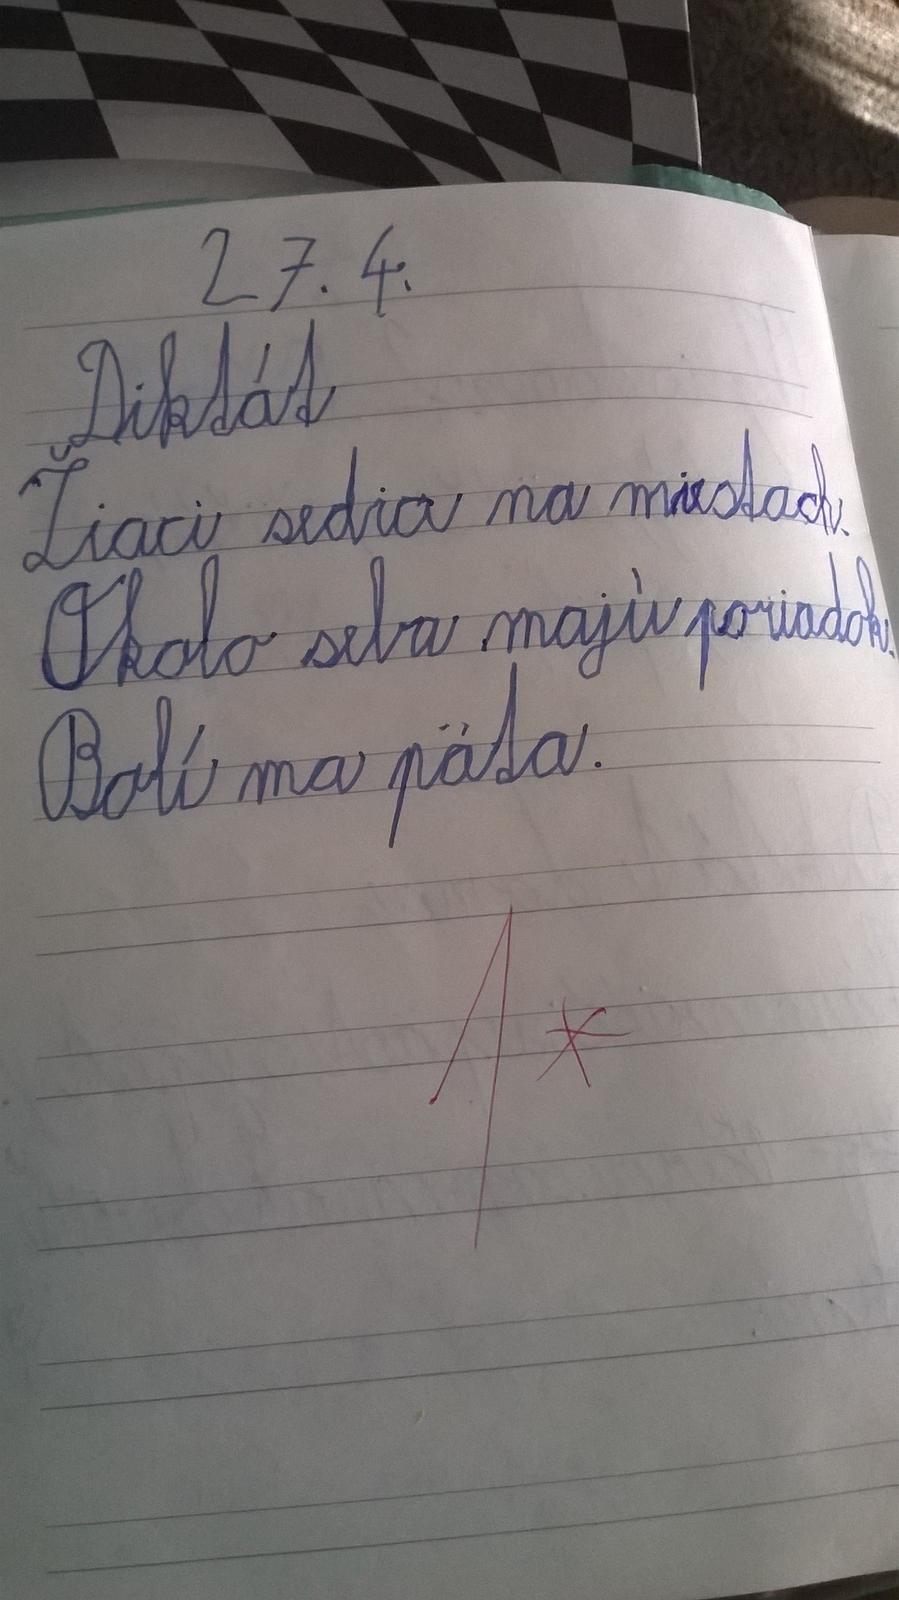 27.4.
Diktát
Žiaci sedia na miestach.
Okolo seba majú poriadok.
Bolí ma päta.
1*